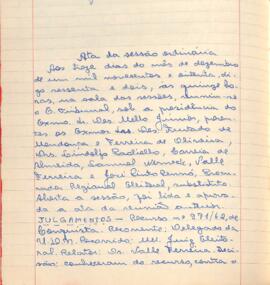 Ata da sessão ordinária
Aos doze dias do mês de dezembro
de um mil novecentos e oitenta, di-
go sessenta e dois, às quinze ho-
ras, na sala das sessões, reuniu-se
o E. Tribunal, sob a presidência do
Exmo. Sr. Des. Mello Júnior, presen-
tes os Exmos. Srs. Des. Furtado de
Mendonça e Ferreira de Oliveira,
Drs. Lindolfo Paoliello, Correia de
Almeida, Samuel Werneck, Valle
Ferreira e José Pinto Renó, Procu-
rador Regional Eleitoral, substituto.
Aberta a sessão, foi lida e aprova-
da a ata da reunião anterior.
JULGAMENTOS - Recurso nº 271/62, de
Conquista. Recorrente: Delegado da
U.D.N. Recorrido: MM. Juiz Eleito-
ral. Relator: Dr. Valle Ferreira. Deci-
são: conheceram do recurso, contra o